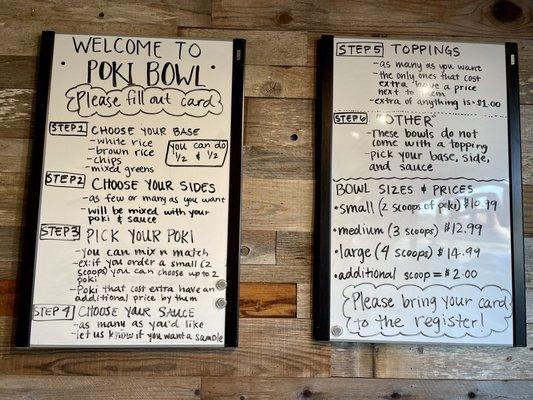 WELCOME TO
POKI BOWL
Please fill out card
STEP 1 CHOOSE YOUR BASE
- white rice
- brown rice
- chips
- mixed greens
you can do
1/2 & 1/2
STEP 2 CHOOSE YOUR SIDES
- as few or many as you want
- will be mixed with your
poki & sauce
STEP 3 PICK YOUR POKI
- you can mix n match
- ex: if you order a small (2
scoops) you can choose up to 2
poki
- Poki that cost extra have an
additional price by them
STEP 4 CHOOSE YOUR SAUCE
- as many as you'd like
- let us know if you want a sample
STEP 5 TOPPINGS
- as many as you want
- the only ones that cost
extra have a price
next to them
- extra of anything is $1.00
STEP 6 "OTHER"
- These bowls do not
come with a topping
- pick your base, side,
and sauce
BOWL SIZES & PRICES
• small (2 scoops of poki) $10.99
• medium (3 scoops) $12.99
• large (4 scoops) $14.99
• additional scoop = $2.00
Please bring your card
to the register!